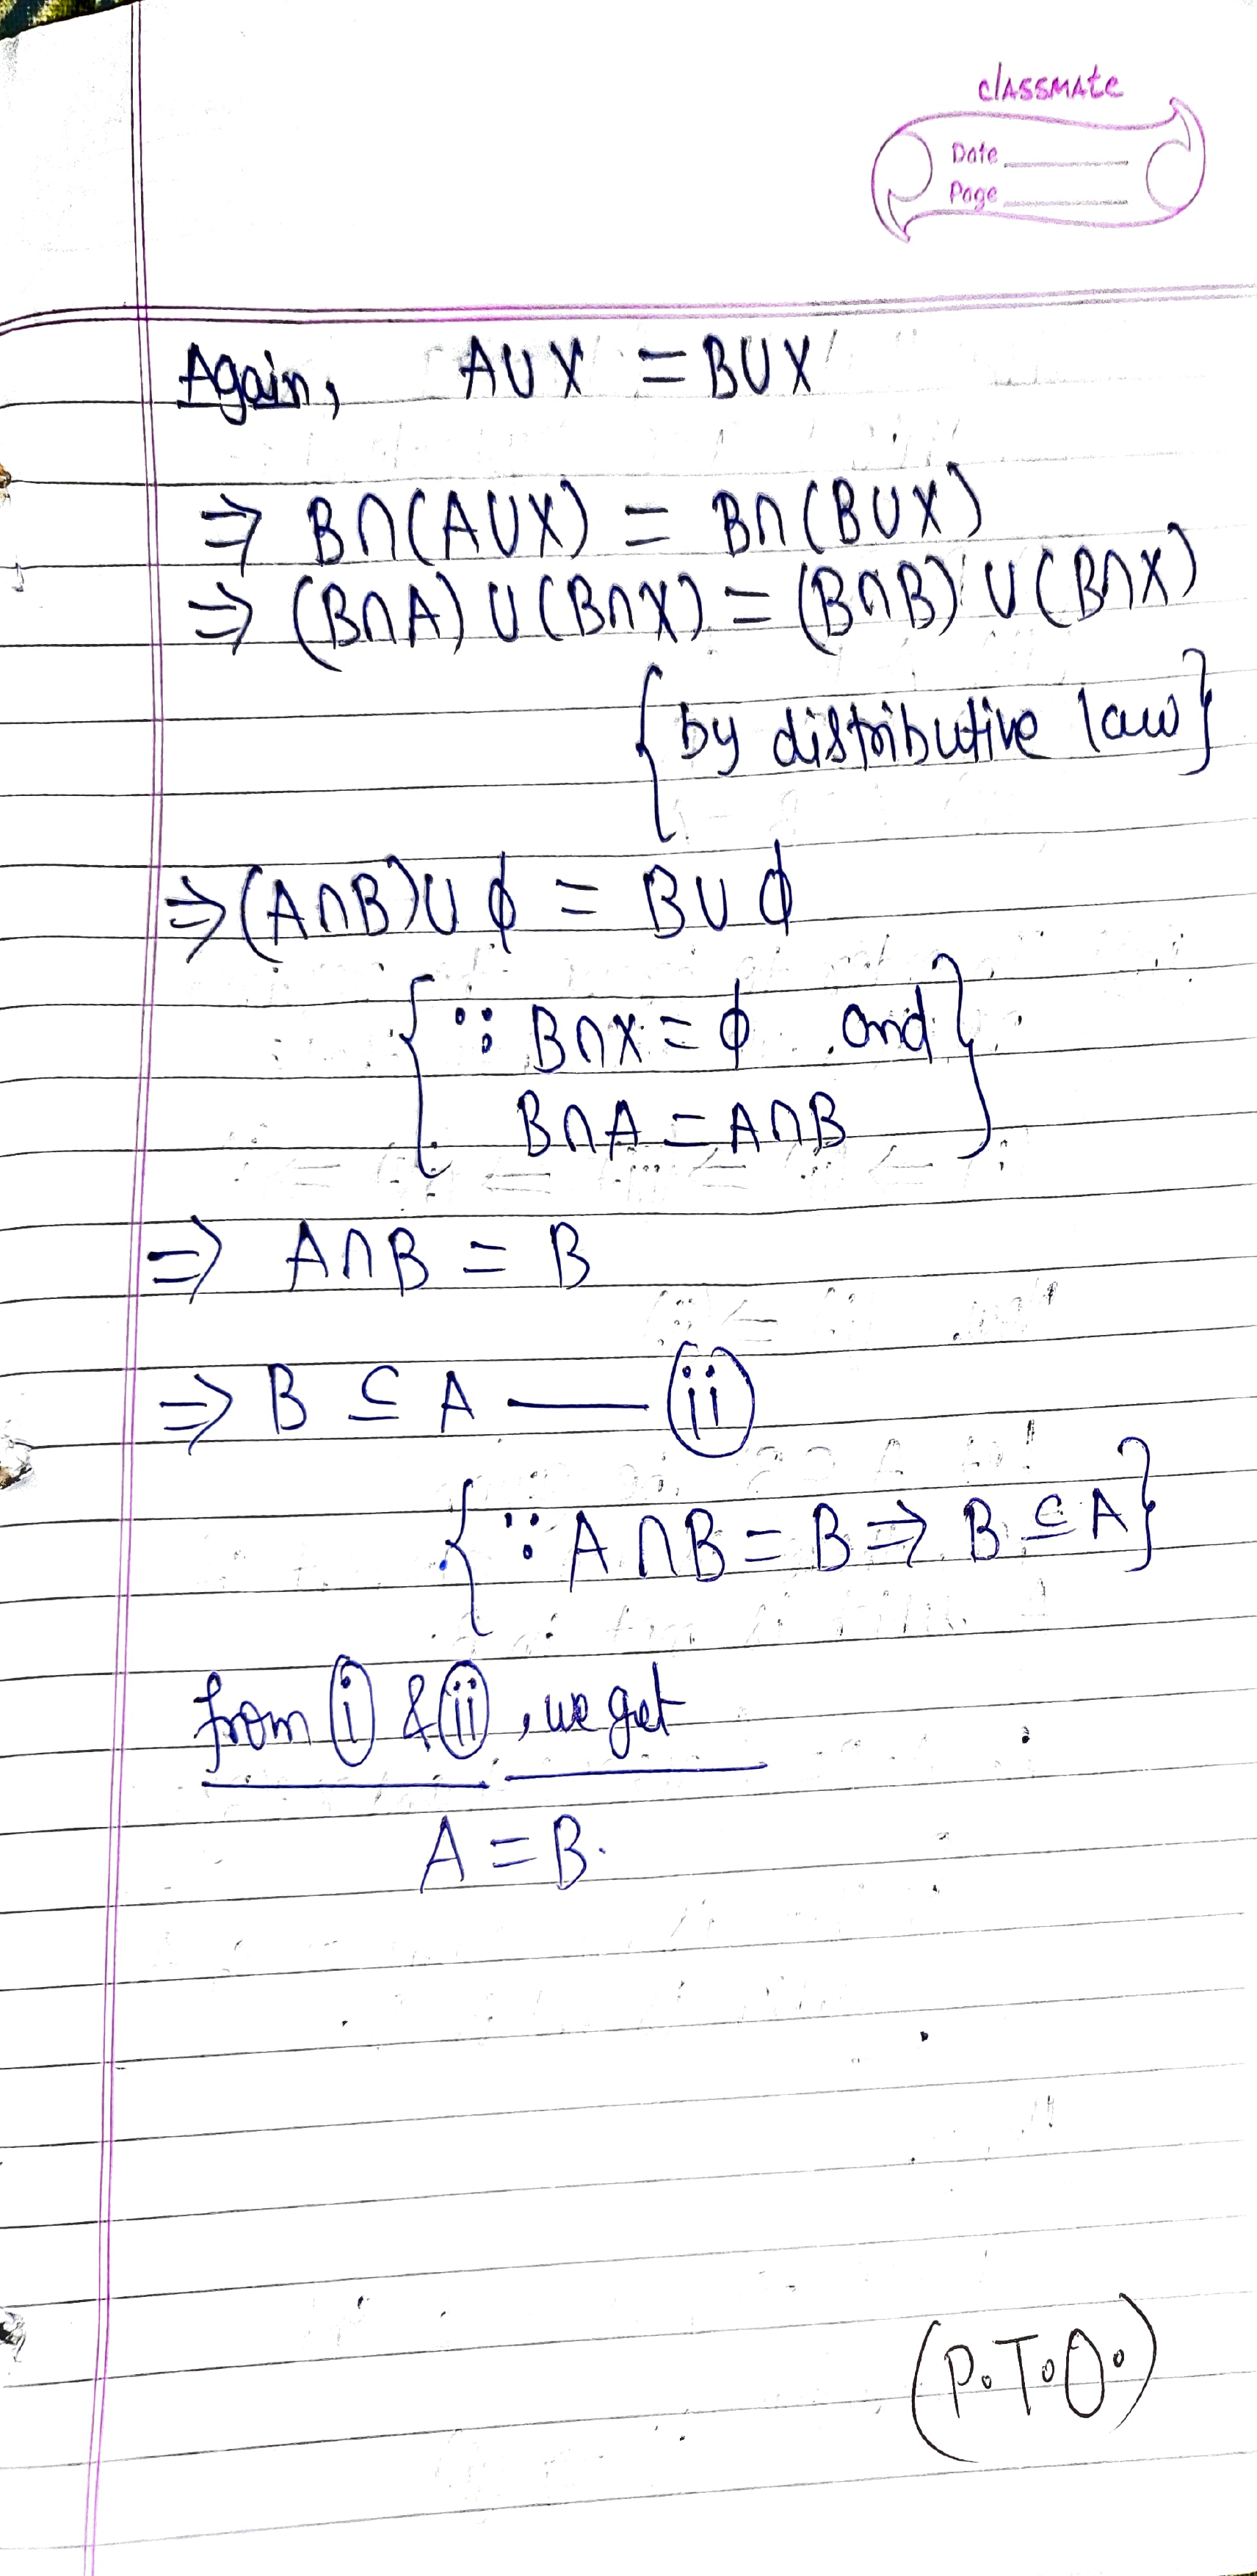 classmate
Date
Page
Again, A∪X = B∪X
⇒ B∩(A∪X) = B∩(B∪X)
⇒ (B∩A)∪(B∩X) = (B∩B)∪(B∩X)
{by distributive law}
⇒(A∩B)∪ϕ = B∪ϕ
{∵ B∩X = ϕ and
B∩A = A∩B}
⇒ A∩B = B
⇒ B ⊆ A — (ii)
{∵ A∩B = B ⇒ B ⊆ A}
from (i) & (ii), we get
A = B.
(P.T.O.)